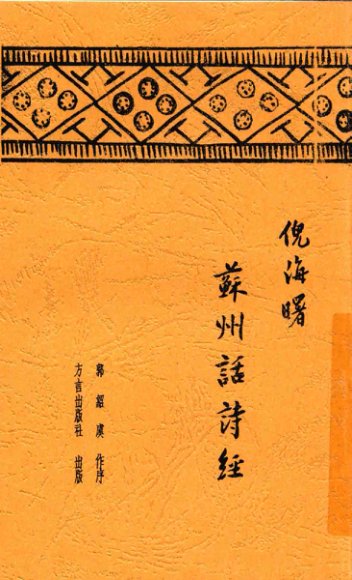 倪海曙
蘇州話詩經
郭紹虞 作序
方言出版社 出版